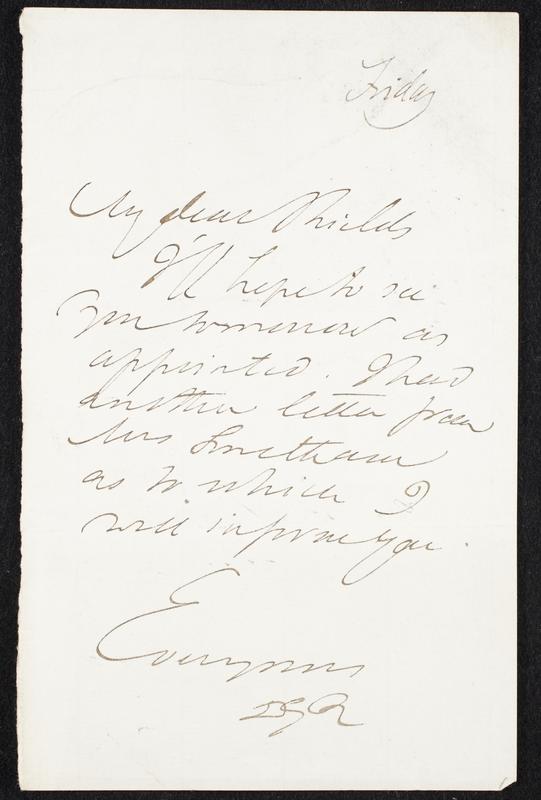 Friday
My dear Shields
I'll hope to see
you tomorrow as
appointed. I had
another letter from
Mrs Smetham
as to which I
will inform you.
Ever yours
DGR